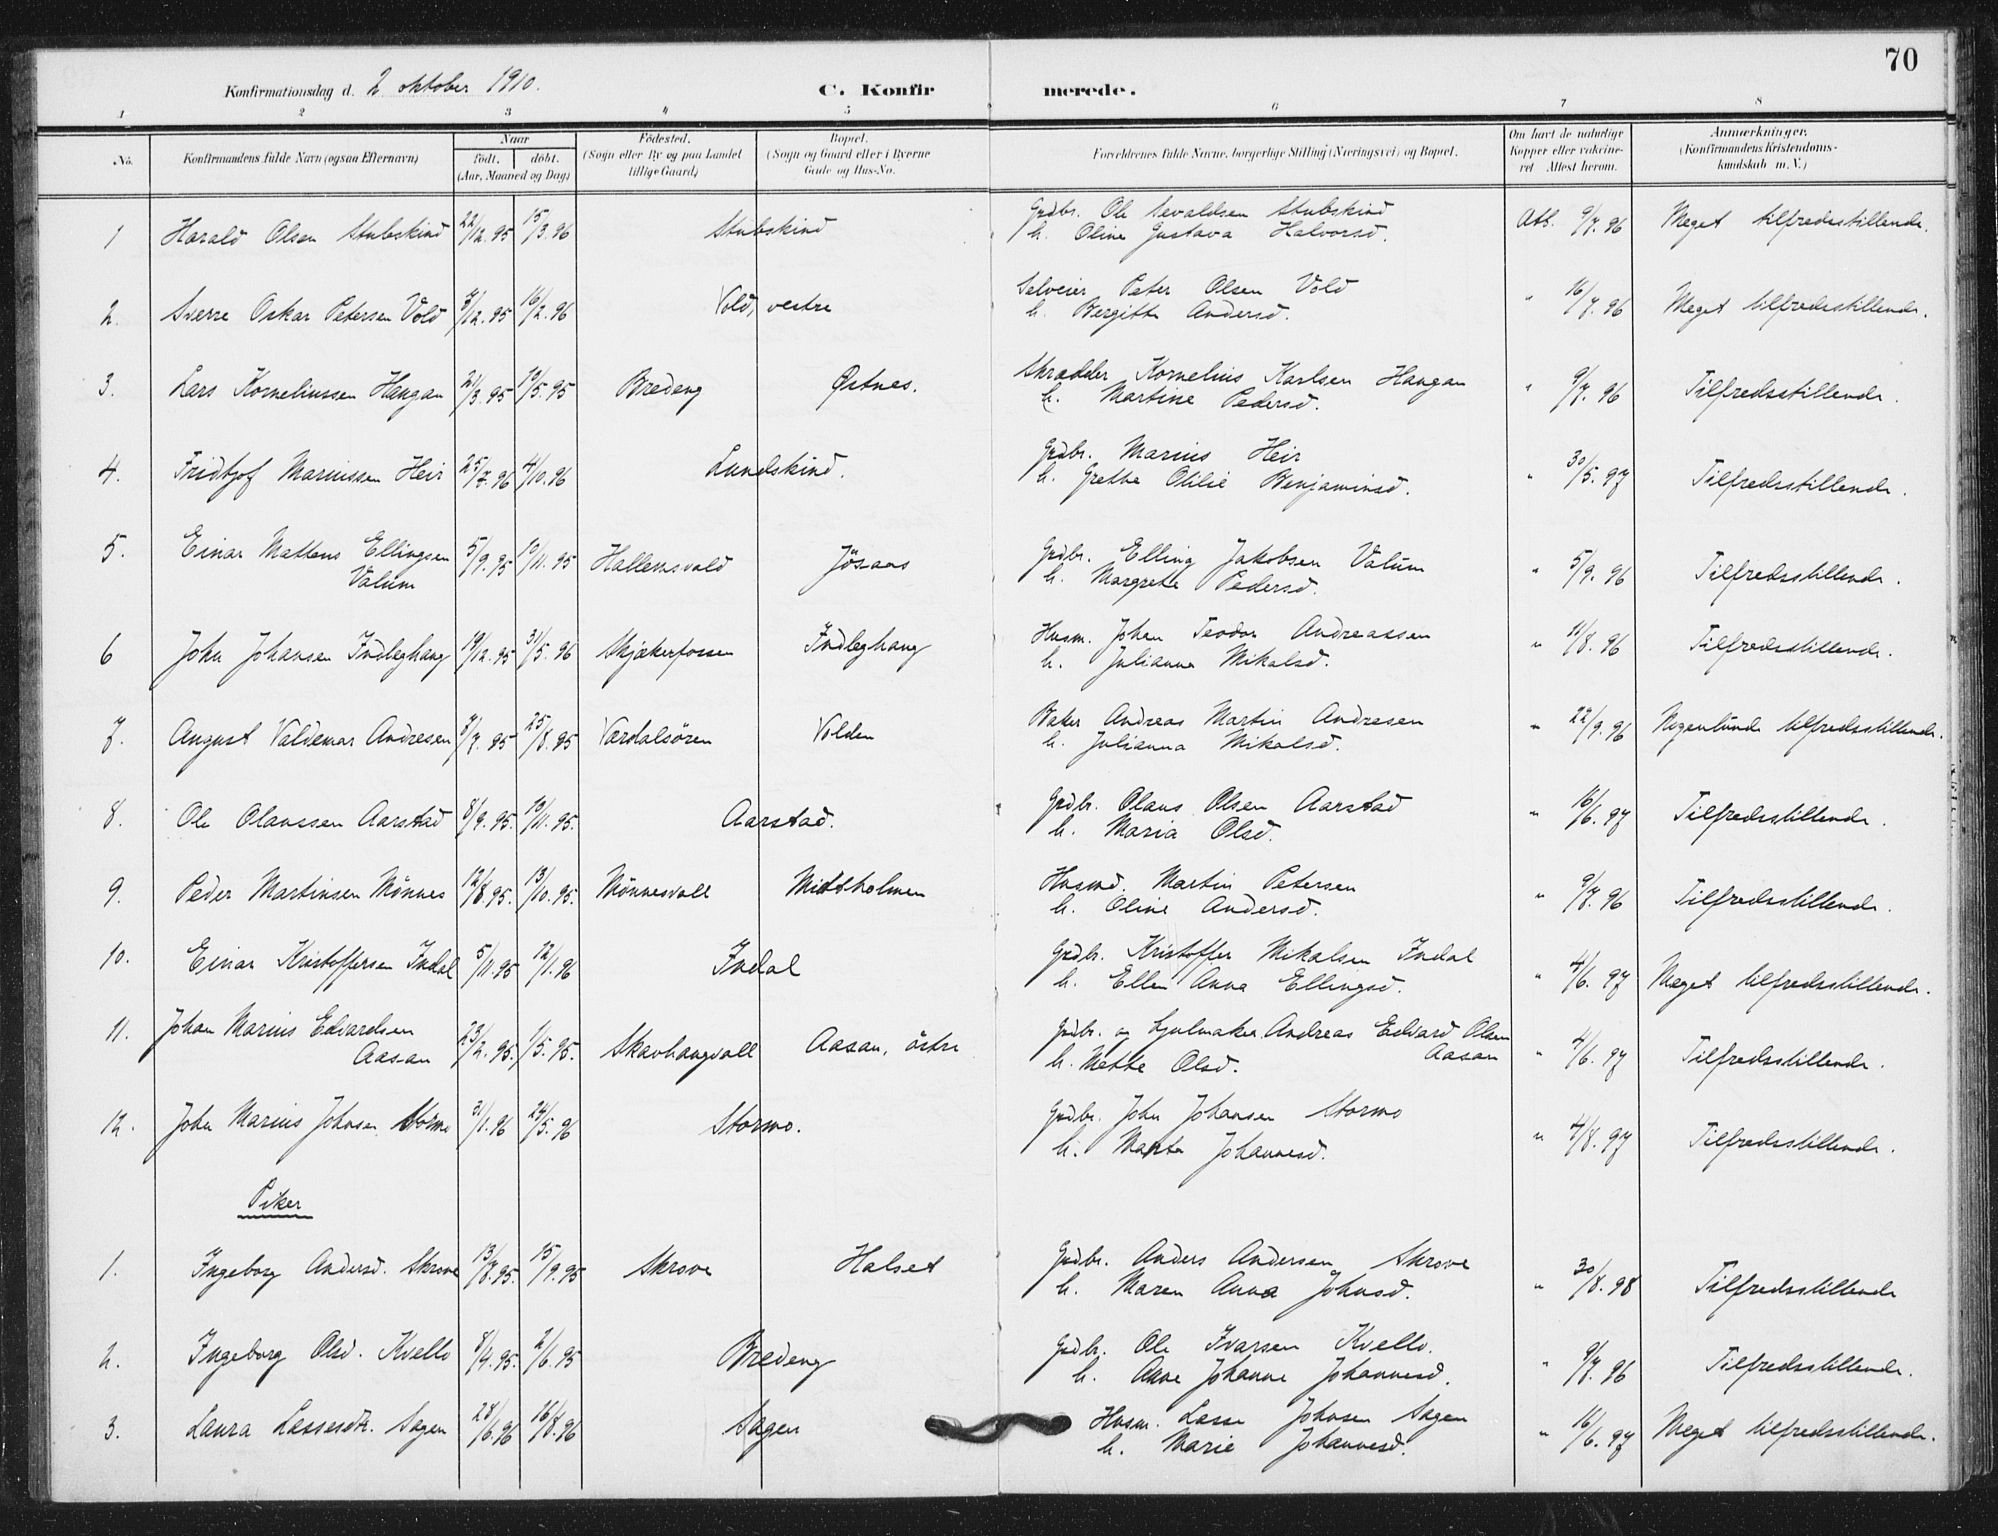 70
Konfirmationsdag d. 2 oktober 1910.
C. Konfirmerede.
1 2 3 4 5 6 7 8
No.
Konfirmandens fulde Navn (ogsaa Efternavn)
Naar
födt. döbt.
(Aar, Maaned og Dag)
Födested.
(Sogn eller By og paa Landet
tillige Gaard)
Bopæl.
(Sogn og Gaard eller i Byerne
Gade og Hus-No.
Forældrenes fulde Navne, borgerlige Stilling (Næringsvei) og Bopæl.
Om havt de naturlige
Kopper eller vakcine-
ret Attest herom.
Anmærkninger.
(Konfirmandens Kristendoms-
kundskab m. V.)
1 Harald Olsen Stubskind 22/12.95 15/3.96 Stubskind Grdbr. Ole Sevaldsen Stubskind Att. 9/7.96 Meget tilfredsstillende.
h. Oline Gustava Halvorsd.
2. Sverre Oskar Petersen Vold 3/12.95 16/2.96 Vold, vestre Selveier Peter Olsen Vold " 16/7.96 Meget tilfredsstillende.
h. Bergitte Andersd.
3. Lars Korneliussen Haugan 21/3.95 19/5.95 Bredeng Østnes. Skrædder Kornelius Karlsen Haugan " 9/7.96 Tilfredsstillende.
h. Martine Pedersd.
4. Fridtjof Mariussen Heir 25/7.96 4/10.96 Lundskind. Grdbr. Marius Heir " 30/5.97 Tilfredsstillende.
h. Grethe Otilie Benjaminsd.
5. Einar Mattens Ellingsen 5/9.95 10/11.95 Hallemsvald Jösaas Grdbr. Elling Jakobsen Valum " 5/9.96 Tilfredsstillende.
Valum h. Margrete Pedersd.
6 John Johansen Indleghaug 19/12.95 31/5.96 Skjækerfossen Indleghaug Husm. Johan Teodor Andreassen " 11/8.96 Tilfredsstillende.
h. Julianna Mikalsd.
7. August Valdemar Andresen 3/7.95 25/8.95 Værdalsören Volden Baker Andreas Martin Andresen " 22/9.96 Nogenlunde tilfredsstillende.
h. Julianna Mikalsd.
8. Ole Olaussen Aarstad 8/9.95. 10/11.95. Aarstad. Grdbr. Olaus Olsen Aarstad " 16/6.97 Tilfredsstillende.
h. Maria Olsd.
9. Peder Martinsen Mönnes 12/8.95. 13/10.95. Mönnesvald Midtholmen Husmd. Martin Petersen " 9/7.96 Tilfredsstillende.
h. Oline Andersd.
10. Einar Kristoffersen Indal 5/11.95 12/1.96 Indal Grdbr. Kristoffer Mikalsen Indal " 4/6.97 Meget tilfredsstillende.
h. Ellen Anna Ellingsd.
11. Johan Marius Edvardsen 23/2.95. 1/5.95. Skavhaugvald Aasan, östre Grdbr. og hjulmaker Andreas Edvard Olsen " 4/6.97 Tilfredsstillende.
Aasan h. Mette Olsd. Aasan
12. John Marius Johnsen Stormo 31/1.96 24/5.96 Stormo. Grdbr. John Johansen Stormo " 4/8.97 Tilfredsstillende.
h. Marta Johannesd.
Piker
1. Ingeborg Andersd. Skrove 13/7.95. 15/9.95 Skrove Halset Grdbr. Anders Andersen Skrove " 30/8.98 Tilfredsstillende
h. Maren Anna Johnsd.
2. Ingeborg Olsd. Kvello 8/4.95. 2/6.95 Bredeng Grdbr. Ole Ivarsen Kvello. " 9/7.96 Tilfredsstillende.
h. Anne Johanne Johannesd.
3. Laura Lassesdtr. Sagen 28/6.96 16/8.96 Sagen Husm. Lasse Johnsen Sagen " 16/6.97 Meget tilfredsstillende.
h. Marie Johannesd.